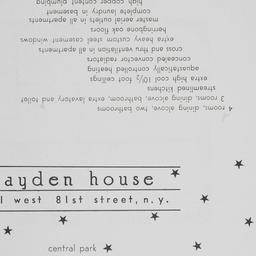 4 rooms, dining alcove, two bathrooms
3 rooms, dining alcove, bathroom, extra lavatory and toilet
streamlined kitchens
extra high cool 10½ foot ceilings
aquastatically controlled heating
concealed convector radiators
cross and thru ventilation in all apartments
extra heavy custom steel casement windows
herringbone oak floors
master aerial outlets in all apartments
complete laundry in basement
high copper content plumbing
ayden house
1 west 81st street, n.y.
central park